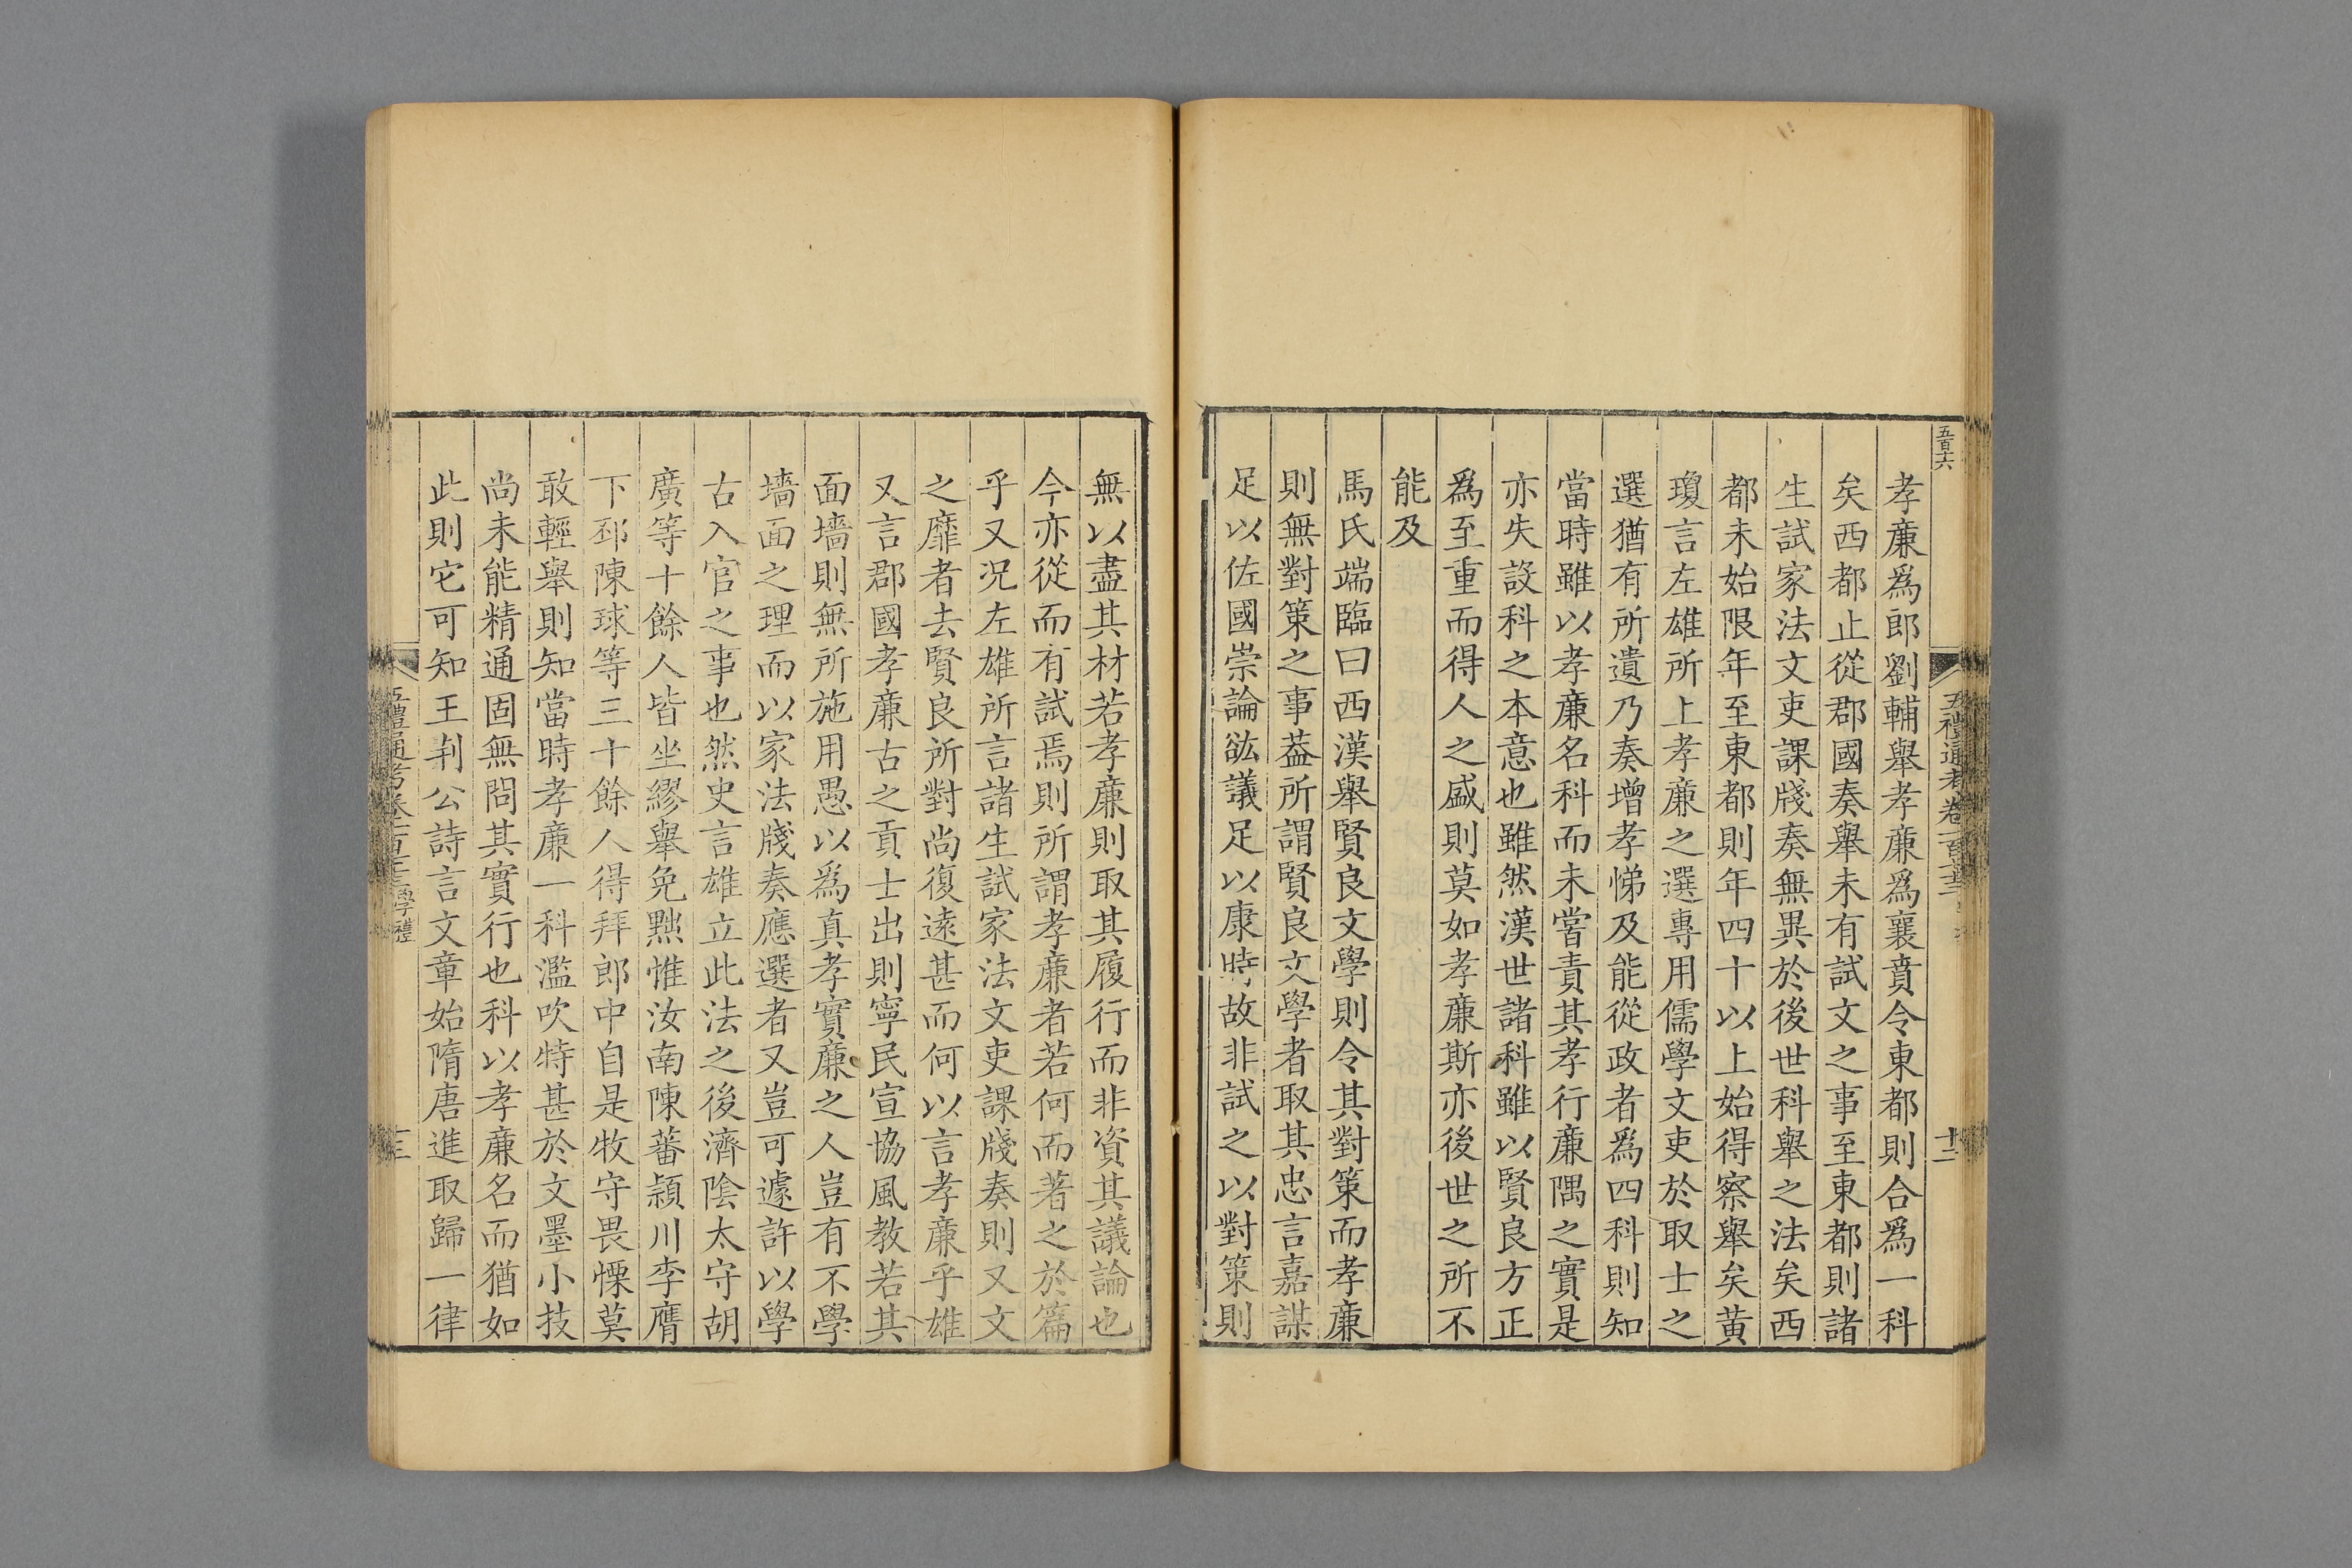 五百六
五禮通考卷一百七十三
十二
孝亷爲郎劉輔舉孝亷爲襄賁令東都則合爲一科
矣西都止從郡國奏舉未有試文之事至東都則諸
生試家法文吏課牋奏無異於後世科舉之法矣西
都未始限年至東都則年四十以上始得察舉矣黄
瓊言左雄所上孝亷之選專用儒學文吏於取士之
選猶有所遺乃奏增孝悌及能從政者爲四科則知
當時雖以孝亷名科而未嘗責其孝行亷隅之實是
亦失設科之本意也雖然漢世諸科雖以賢良方正
爲至重而得人之盛則莫如孝亷斯亦後世之所不
能及
馬氏端臨曰西漢舉賢良文學則令其對策而孝亷
則無對策之事葢所謂賢良文學者取其忠言嘉謀
足以佐國崇論谹議足以康時故非試之以對策則
無以盡其材若孝亷則取其履行而非資其議論也
今亦從而有試焉則所謂孝亷者若何而著之於篇
乎又況左雄所言諸生試家法文吏課牋奏則又文
之靡者去賢良所對尚復遠甚而何以言孝亷乎雄
又言郡國孝亷古之貢士出則寧民宣協風教若其
面墻則無所施用愚以爲真孝實亷之人豈有不學
墻面之理而以家法牋奏應選者又豈可遽許以學
古入官之事也然史言雄立此法之後濟陰太守胡
廣等十餘人皆坐繆舉免黜惟汝南陳蕃潁川李膺
下邳陳球等三十餘人得拜郎中自是牧守畏慄莫
敢輕舉則知當時孝亷一科濫吹特甚於文墨小技
尚未能精通固無問其實行也科以孝亷名而猶如
此則它可知王荆公詩言文章始隋唐進取歸一律
五禮通考卷一百七十三 學禮
十三